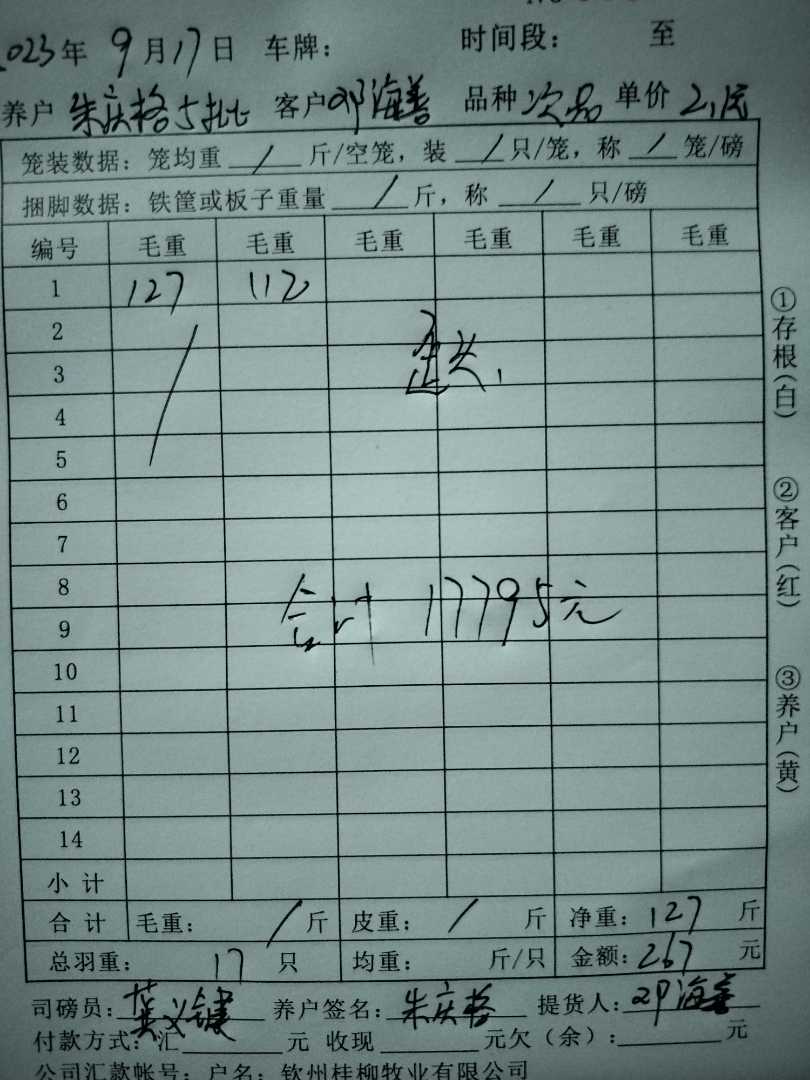 2023年 9月17日 车牌： 时间段： 至
养户 朱庆格5批 客户 邓海善 品种 次品 单价 2.1元
笼装数据：笼均重 / 斤/空笼，装 / 只/笼，称 / 笼/磅
捆脚数据：铁筐或板子重量 / 斤，称 / 只/磅
编号 毛重 毛重 毛重 毛重 毛重 毛重
1 127 112
2
3
4
5
6
7
8
合计 17795元
9
10
11
12
13
14
小计
合计 毛重： / 斤 皮重： / 斤 净重：127 斤
总羽重： 17 只 均重： 斤/只 金额：267 元
司磅员： 养户签名：朱庆格 提货人：邓海善
付款方式：汇 元 收现 元欠（余）： 元
公司汇款帐号：户名：钦州桂柳牧业有限公司
①存根（白）
②客户（红）
③养户（黄）